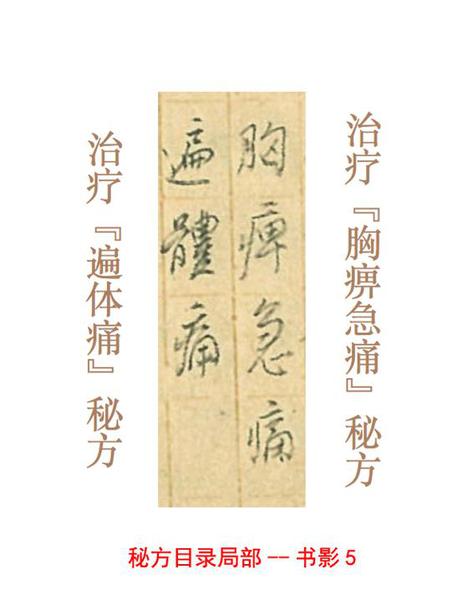 治疗『胸痹急痛』秘方
胸痺急痛
遍體痛
治疗『遍体痛』秘方
秘方目录局部 -- 书影 5